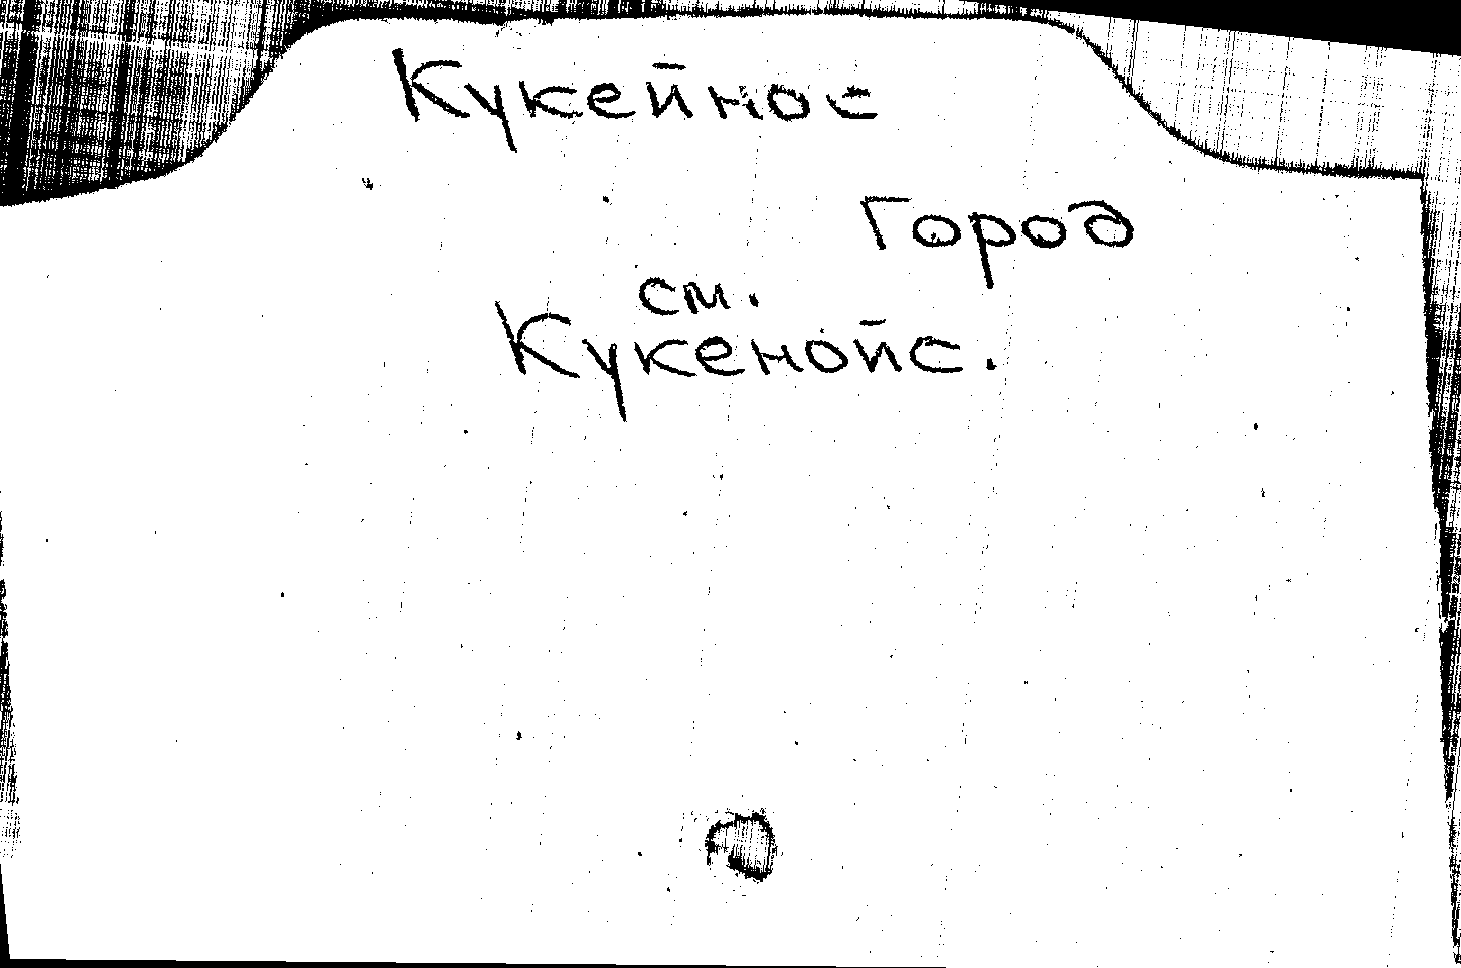 Кукейнос
Город
см.
Кукенойс.